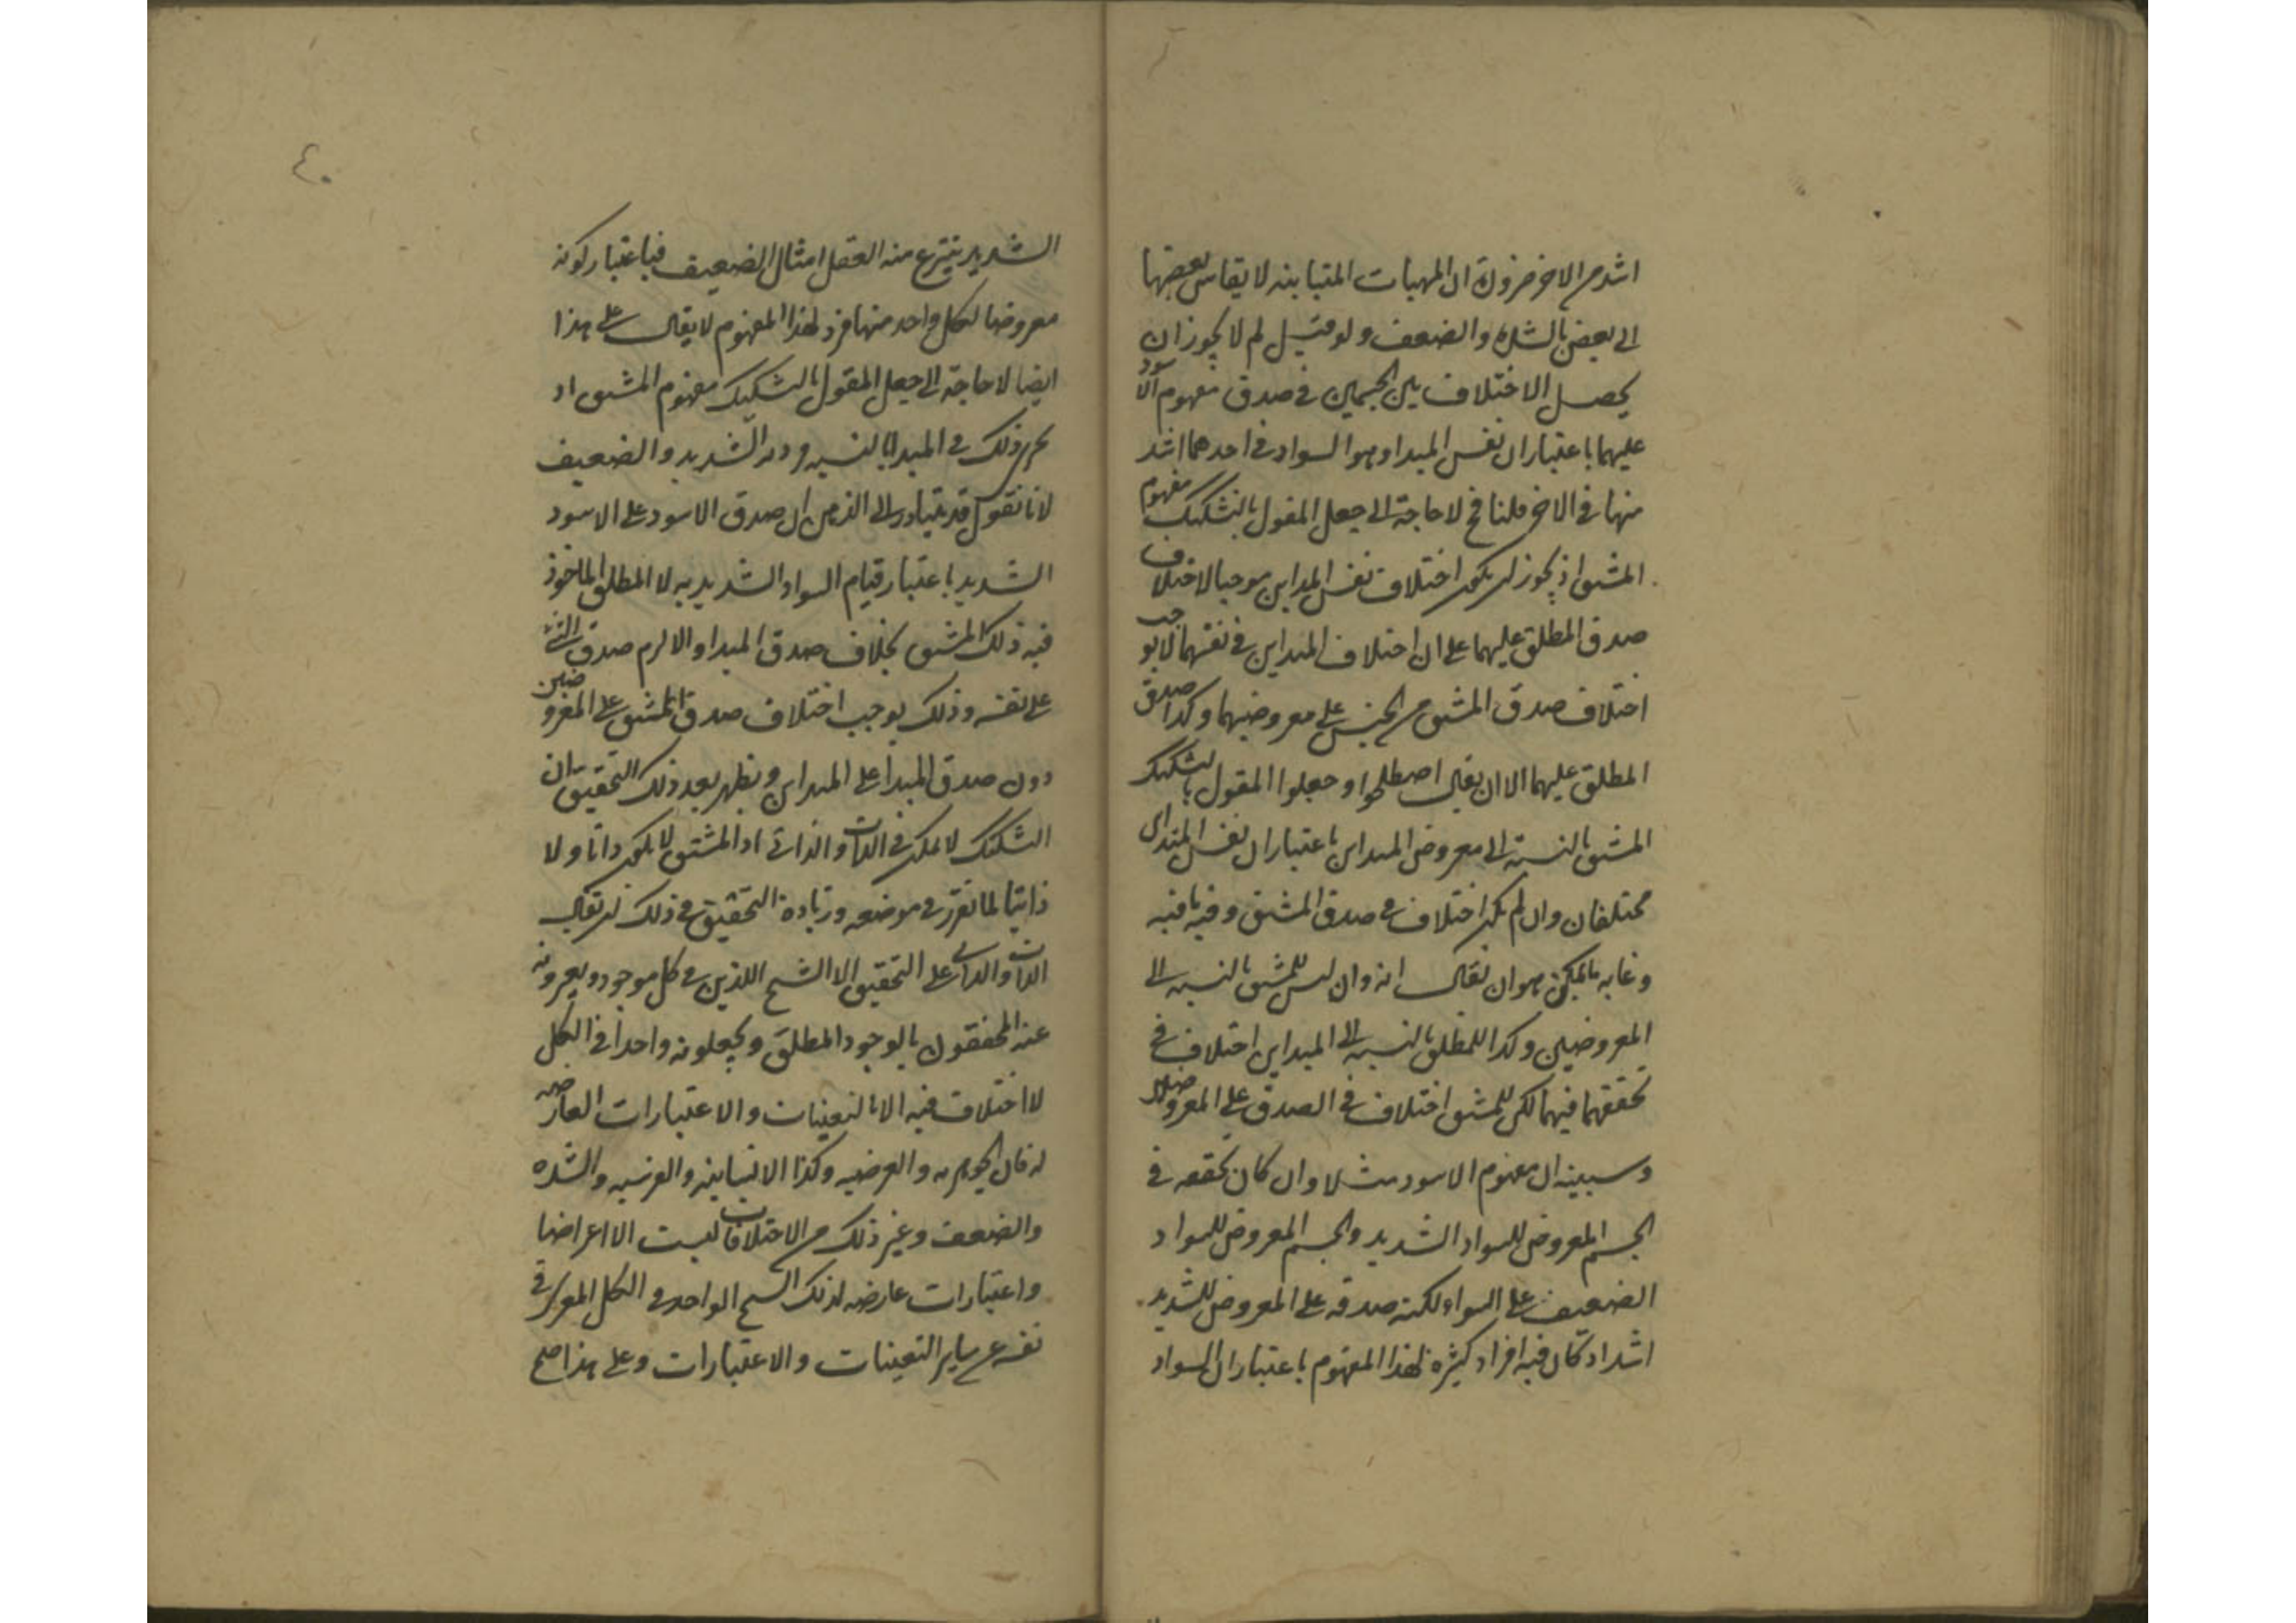 اشد من الاخر ضرورة ان المهيات المتباينه لا يقاس بعضها
الى بعض بالشدة والضعف ولو قيل لم لا يجوز ان
يحصل الاختلاف بين الجسمين فى صدق مفهوم الاسود
عليهما باعتبار ان نفس المبدا وهو السواد فى احدهما اشد
منها فى الاخر قلنا فح لا حاجة الى جعل المقول بالتشكيك مفهوم
المشتق اذ يجوز ان يكون اختلاف نفس المبداين موجبا لاختلاف
صدق المطلق عليهما على ان اختلاف المبداين فى نفسهما لا يوجب
اختلاف صدق المشتق من الجنس على معروضيهما وكذا صدق
المطلق عليهما الا ان يقال اصطلحوا وجعلوا المقول بالتشكيك
المشتق بالنسبة الى معروض المبداين باعتبار ان نفس المبداى
مختلفان وان لم يكن اختلاف فى صدق المشتق وفيه ما فيه
وغايه ما يمكن هو ان يقال انه وان ليس للمشتق بالنسبه الى
المعروضين وكذا للمطلق بالنسبه الى المبداين اختلاف فى
تحققهما فيهما لكن للمشتق اختلاف فى الصدق على المعروضين
وسببه ان مفهوم الاسود مثلا وان كان تحققه فى
الجسم المعروض للسواد الشديد والجسم المعروض للسواد
الضعيف على السواء لكنه صدقه على المعروض للشديد
اشد اذ كان فيه افراد كثيره لهذا المفهوم باعتبار ان السواد
٤٠
الشديد ينتزع منه العقل امثال الضعيف فباعتبار كونه
معروضا لكل واحد منها فرد لهذا المفهوم لا يقال على هذا
ايضا لا حاجة الى جعل المقول بالتشكيك مفهوم المشتق اذ
يجرى ذلك فى المبدا بالنسبه الشديد والضعيف
لانا نقول قد يتبادر الى الذهن ان صدق الاسود على الاسود
الشديد باعتبار قيام السواد الشديد به لا المطلق الماخوذ
فيه ذلك المشتق بخلاف صدق المبدا والا لزم صدق الشئ
على نفسه وذلك يوجب اختلاف صدق المشتق على المعروضين
دون صدق المبدا على المبداين ويظهر بعد ذلك التحقيق ان
التشكيك لا يمكن فى الذات والذاتى اذ المشتق لا يكون ذاتا ولا
ذاتيا لما تقرر فى موضعه وزيادة التحقيق فى ذلك ان يقال
الذات والذاتى على التحقيق الا الشبح اللذين فى كل موجود ويعبرونه
عنه المحققون بالوجود المطلق ويجعلونه واحدا فى الكل
لا اختلاف فيه الا بالتعينات والاعتبارات العارضه
له فان الجوهريه والعرضيه وكذا الانسانيه والفرسيه والشده
والضعف وغير ذلك من الاختلافات ليست الا اعراضا
واعتبارات عارضه لذلك الشبح الواحد فى الكل المعرى فى
نفسه عن ساير التعينات والاعتبارات وعلى هذا صح